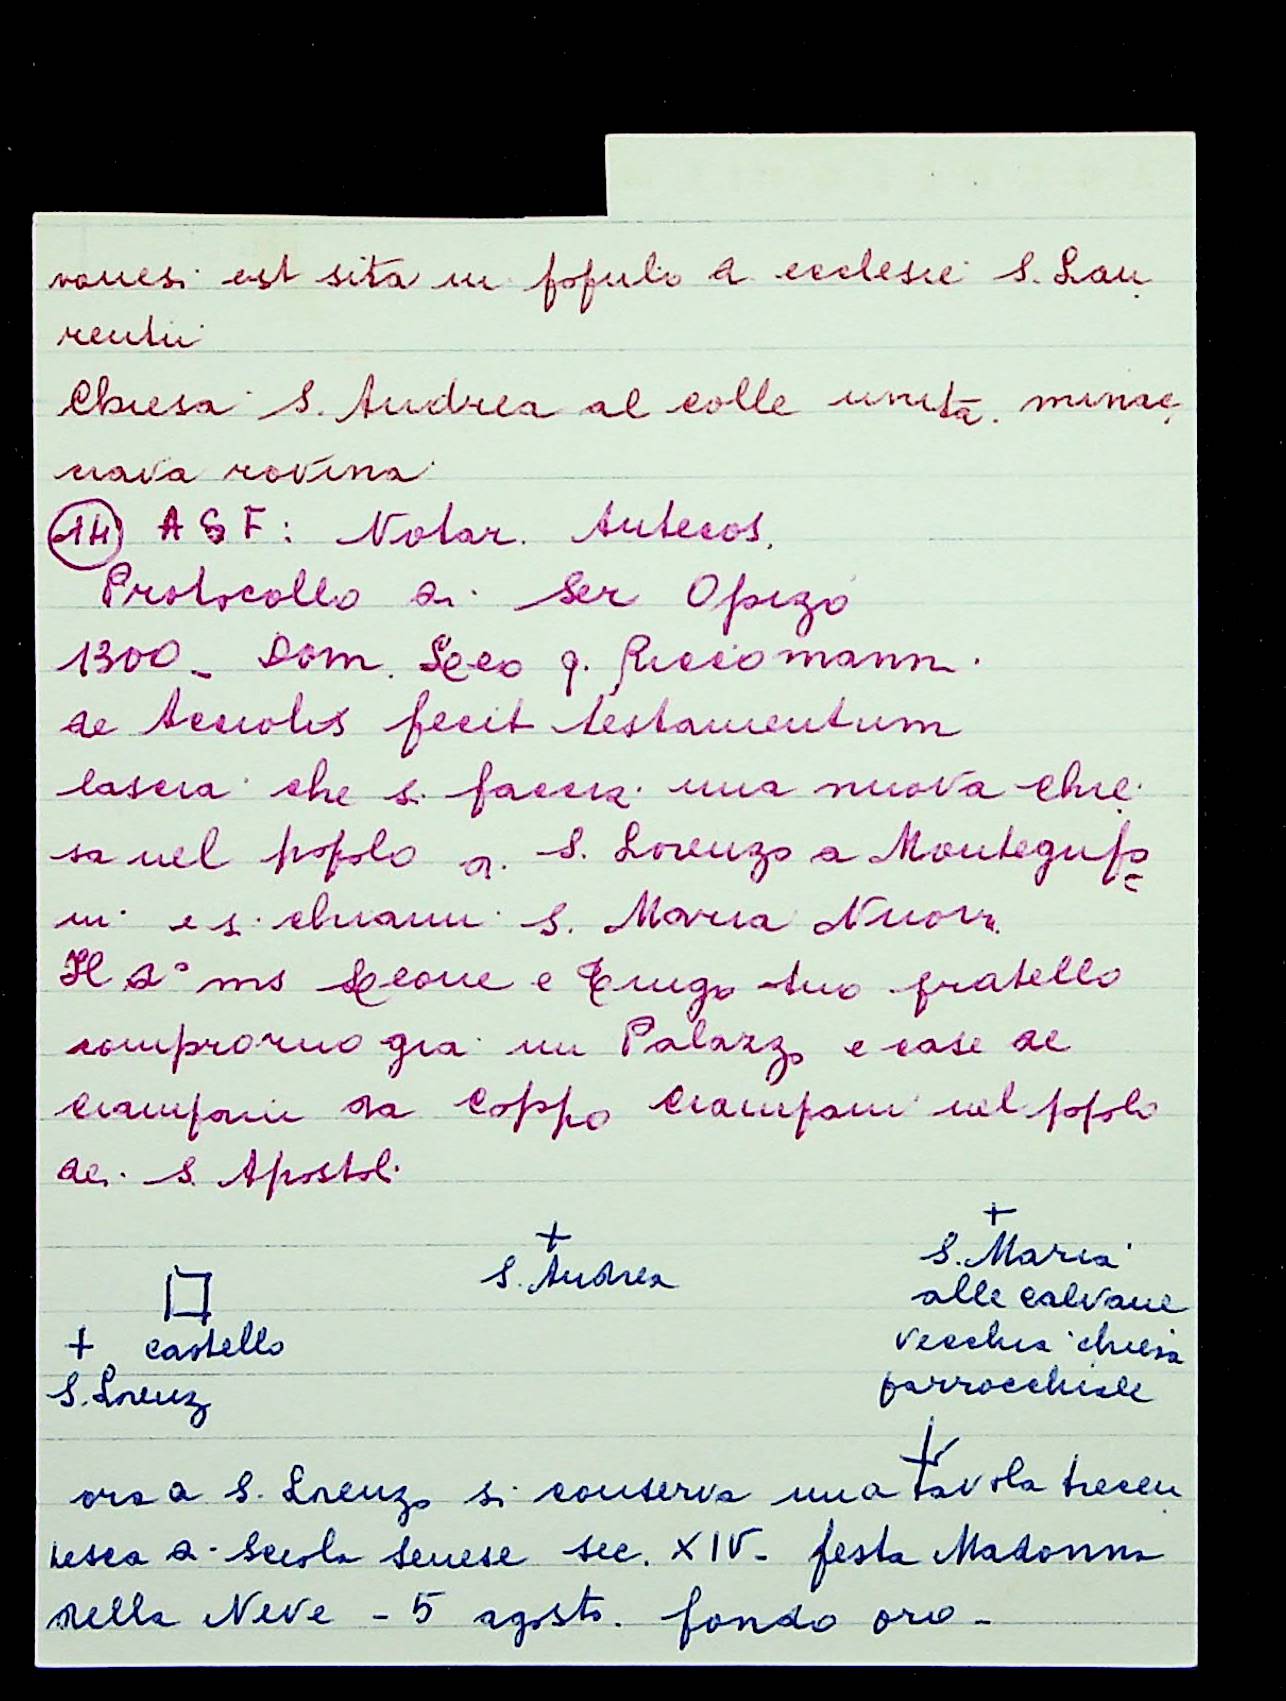 vanesi est sita in populo d ecclesie S. Lau
rentii
Chiesa S. Andrea al colle unita. minac
ciava rovina
(14) ASF: Notar. Antecos.
Protocollo di Ser Opizo
1300 - Dom. Leo q. Ricciomanni
de Acciolis fecit testamentum
lascia che si faccia una nuova chie
sa nel popolo di S. Lorenzo a Montegufo
ni e si chiami S. Maria Nuova
Il do ms Leone e suo fratello
comprorno gia un Palazzo e case de
Ciampani da Coppo Ciampani nel popolo
dei S. Apostoli
+
S. Andrea
+
S. Maria
alle calvane
vecchia chiesa
parrocchiale
castello
+
S. Lorenz
ora a S. Lorenzo si conserva una tavola trecen
tesca di scuola senese sec. XIV - festa Madonna
della Neve - 5 agosto. fondo oro -